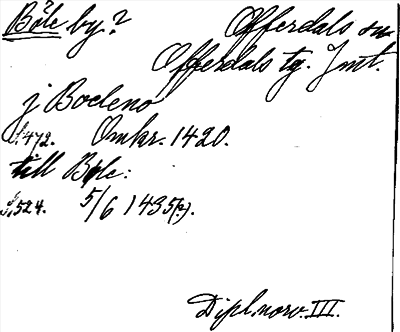 Böle by? Offerdals sn
Offerdals tg. Jmt.
j Boleno
s. 472. Omkr. 1420.
till Bøle:
s. 524. 5/6 1435(?).
Dipl. norv. III.